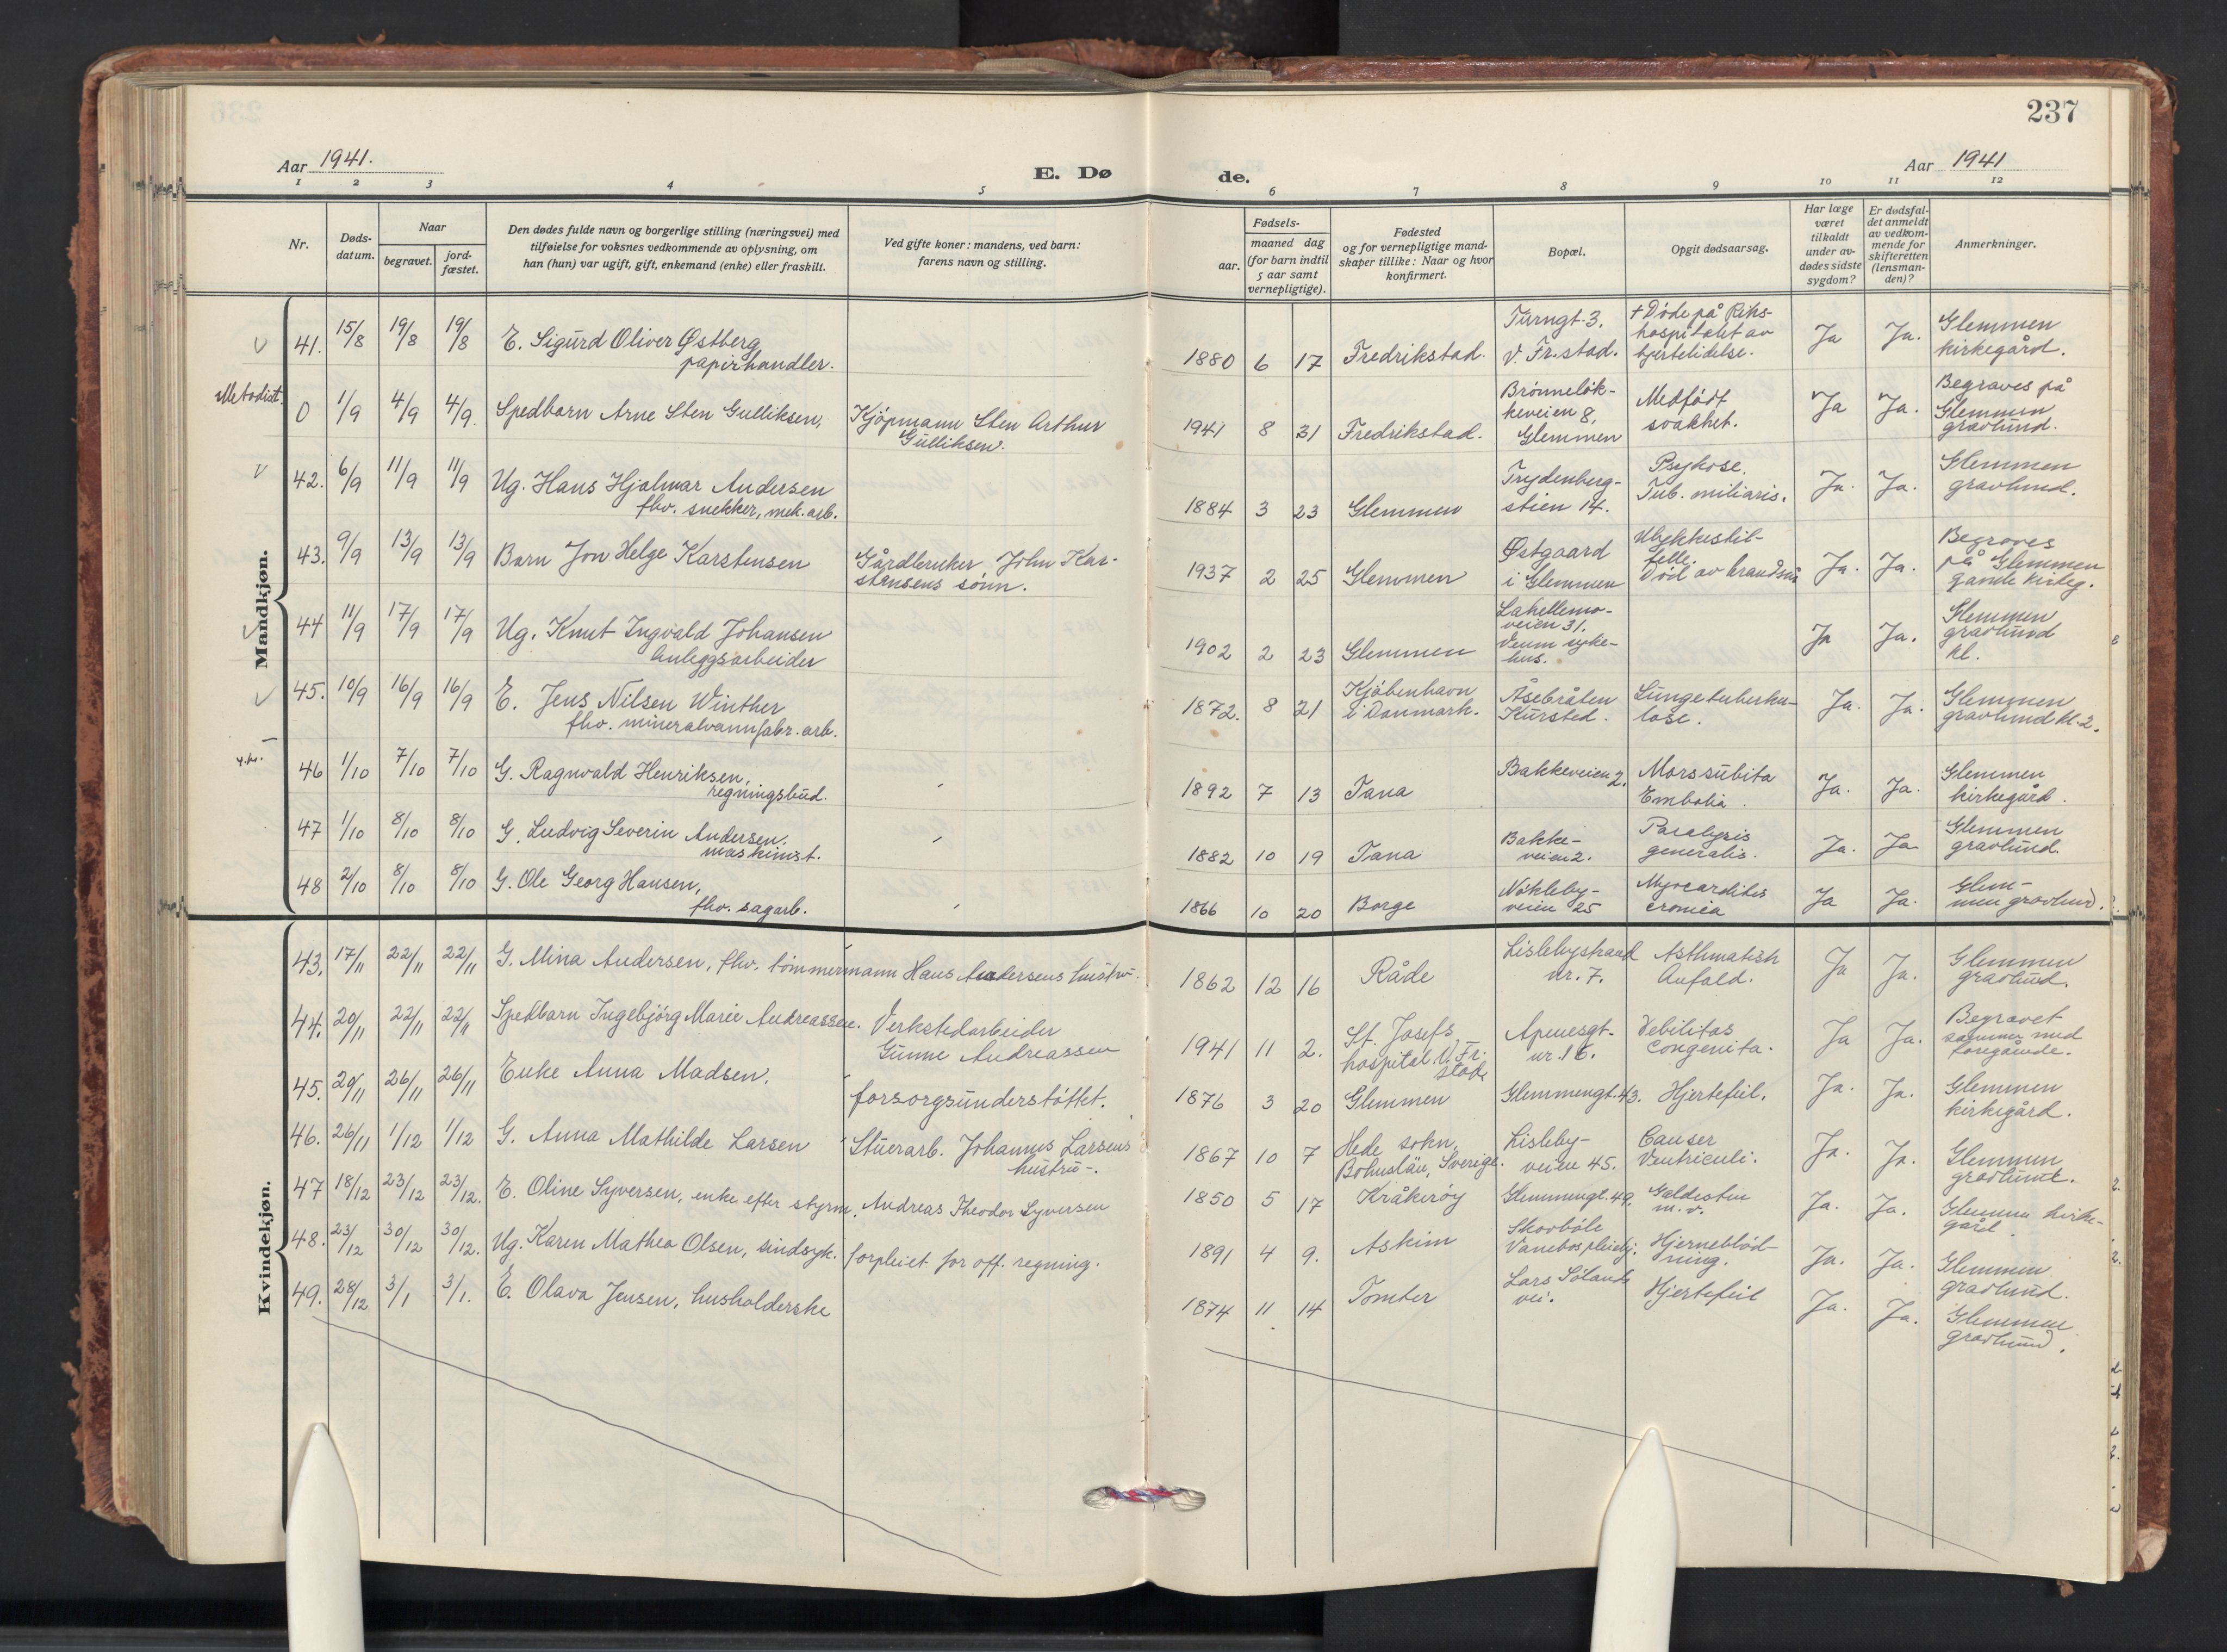 237
Aar 1941.
E. Dø
de.
Aar 1941
1 2 3 4 5 6 7 8 9 10 11 12
Nr.
Døds-
datum.
Naar
begravet.
jord-
fæstet.
Den dødes fulde navn og borgerlige stilling (næringsvei) med
tilføielse for voksnes vedkommende av oplysning, om
han (hun) var ugift, gift, enkemand (enke) eller fraskilt.
Ved gifte koner: mandens, ved barn:
farens navn og stilling.
Fødsels-
aar.
maaned dag
(for barn indtil
5 aar samt
vernepligtige).
Fødested
og for vernepligtige mand-
skaper tillike: Naar og hvor
konfirmert.
Bopæl.
Opgit dødsaarsag.
Har læge
været
tilkaldt
under av-
dødes sidste
sygdom?
Er dødsfal-
det anmeldt
av vedkom-
mende for
skifteretten
(lensman-
den)?
Anmerkninger.
Mandkjøn.
41. 15/8 19/8 19/8 E. Sigurd Oliver Østberg
papirhandler.
1880 6 17 Fredrikstad.
Turngt. 3.
V. Fr.stad.
+ Døde på Riks-
hospitalet av
hjertelidelse.
Ja Ja.
Glemmen
kirkegård.
Metodist.
0 1/9 4/9 4/9. Spedbarn Arne Sten Gulliksen,
Kjøpmann Sten Arthur
Gulliksen.
1941 8 31 Fredrikstad.
Brønneløk-
keveien 8,
Glemmen
Medfødt
svakhet.
Ja Ja.
Begraves på
Glemmen
gravlund.
42. 6/9 11/9 11/9 Ug. Hans Hjalmar Andersen
fhv. snekker, mek. arb.
1884 3 23 Glemmen
Trydenberg-
stien 14.
Psykose.
Tub. miliaris.
Ja. Ja.
Glemmen
gravlund.
43. 9/9 13/9 13/9 Barn Jon Helge Karstensen
Gårdbruker John Kar-
stensens sønn.
1937 2 25 Glemmen
Østgaard
i Glemmen
Ulykkestil-
felle.
Død av brandsår
Ja. Ja.
Begraves
på Glemmen
gamle kirkeg.
44 11/9 17/9 17/9 Ug. Knut Ingvald Johansen
Anleggsarbeider
1902 2 23 Glemmen
Lahellemo-
veien 31.
Veum syke-
hus.
Ja Ja.
Glemmen
gravlund
kl.
45. 10/9 16/9 16/9 E. Jens Nilsen Winther
fhv. mineralvannfabr. arb.
1872. 8 21 Kjøbenhavn
i Danmark.
Åsebråten
Kursted.
Lungetuberku-
lose.
Ja. Ja.
Glemmen
gravlund kl. 2.
46 1/10 7/10 7/10 G. Ragnvald Henriksen,
regningsbud.
1892 7 13 Tana
Bakkeveien 2.
Mors subita
Embolia.
Ja. Ja.
Glemmen
kirkegård.
47 1/10 8/10 8/10 G. Ludvig Severin Andersen,
maskinist.
1882 10 19 Tana
Bakke-
veien 2.
Paralysis
generalis.
Ja. Ja
Glemmen
gravlund.
48 2/10 8/10 8/10 G. Ole Georg Hansen,
fhv. sagarb.
1866 10 20 Borge
Nøkleby-
veien 25
Myocarditis
cronica
Ja Ja.
Glem-
men gravlund.
Kvindekjøn.
43. 17/11 22/11 22/11 G. Mina Andersen, fhv. tømmermann Hans Andersens hustru.
1862 12 16 Råde
Lislebystrand
nr. 7.
Asthmatisk
Anfald.
Ja Ja.
Glemmen
gravlund.
44. 20/11 22/11 22/11 Spedbarn Ingebjørg Marie Andreassen.
Verkstedarbeider
Gunne Andreassen
1941 11 2. St. Josefs
hospital V. Fr.
stad.
Apenesgt.
nr. 16.
Debilitas
Congenita.
Ja Ja.
Begravet
sammen med
foregående.
45. 20/11 26/11 26/11 Enke Anna Madsen.
forsorgsunderstøttet.
1876 3 20 Glemmen
Glemmengt. 43.
Hjertefeil.
Ja. Ja.
Glemmen
kirkegård.
46. 26/11 1/12 1/12 G. Anna Mathilde Larsen
Stuerarb. Johannes Larsens
hustru.
1867 10 7 Hede sokn,
Bohuslän, Sverige.
Lisleby-
veien 45.
Cancer
Ventriculi.
Ja. Ja.
Glemmen
gravlund.
47 18/12 23/12 23/12. E. Oline Syversen, enke efter styrm. Andreas Theodor Syversen
1850 5 17 Kråkerøy
Glemmengt. 49.
Galdesten
m. v.
Ja. Ja.
Glemmen kirke-
gård.
48. 23/12 30/12 30/12. Ug. Karen Mathea Olsen, sindsyk. forpleiet for off. regning.
1891 4 9. Askim
Skovbøle
Vanebos pleiehj.
Hjerneblød-
ning.
Ja. Ja.
Glemmen
gravlund.
49. 28/12 3/1 3/1. E. Olava Jensen, husholderske
1874 11 14 Tomter
Lars Sølands
vei.
Hjertefeil
Ja. Ja.
Glemmen
gravlund.